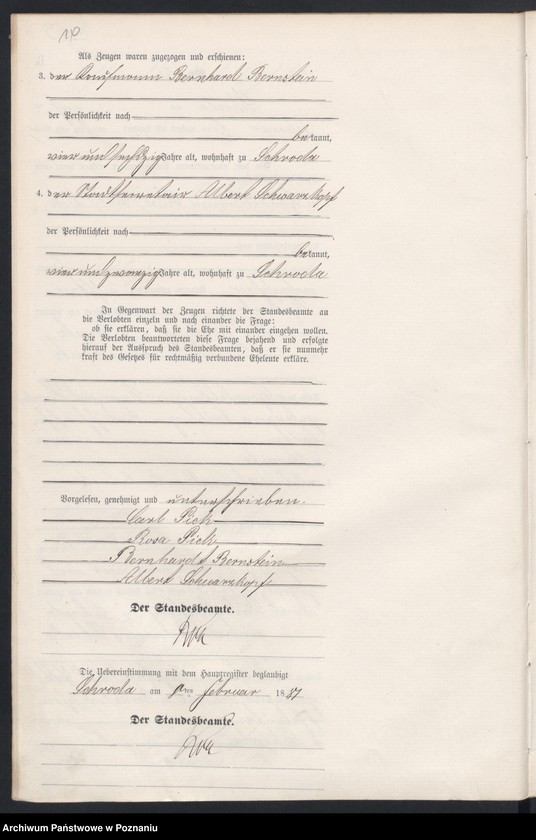 Als Zeugen waren zugezogen und erschienen:
3. der Kaufmann Bernhard Bernstein
der Persönlichkeit nach
bekannt,
vier und sechzig Jahre alt, wohnhaft zu Schroda
4. der Stadtsecretair Albert Schwarzkopf
der Persönlichkeit nach
bekannt,
vier und zwanzig Jahre alt, wohnhaft zu Schroda
In Gegenwart der Zeugen richtete der Standesbeamte an
die Verlobten einzeln und nach einander die Frage:
ob sie erklären, daß sie die Ehe mit einander eingehen wollen.
Die Verlobten beantworteten diese Frage bejahend und erfolgte
hierauf der Ausspruch des Standesbeamten, daß er sie nunmehr
kraft des Gesetzes für rechtmäßig verbundene Eheleute erkläre.
Vorgelesen, genehmigt und unterschrieben.
Carl Pick
Rosa Pick
Bernhardt Bernstein
Albert Schwarzkopf
Der Standesbeamte.
Die Uebereinstimmung mit dem Hauptregister beglaubigt
Schroda am Februar 1887
Der Standesbeamte.
Archiwum Państwowe w Poznaniu